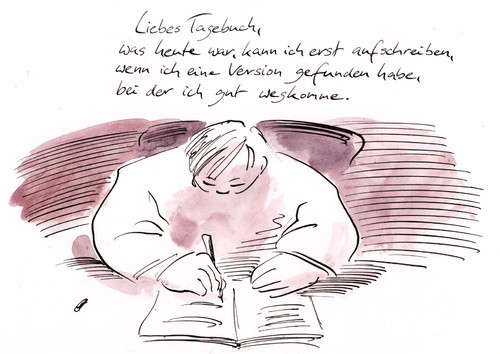 Liebes Tagebuch,
was heute war, kann ich erst aufschreiben,
wenn ich eine Version gefunden habe,
bei der ich gut wegkomme.